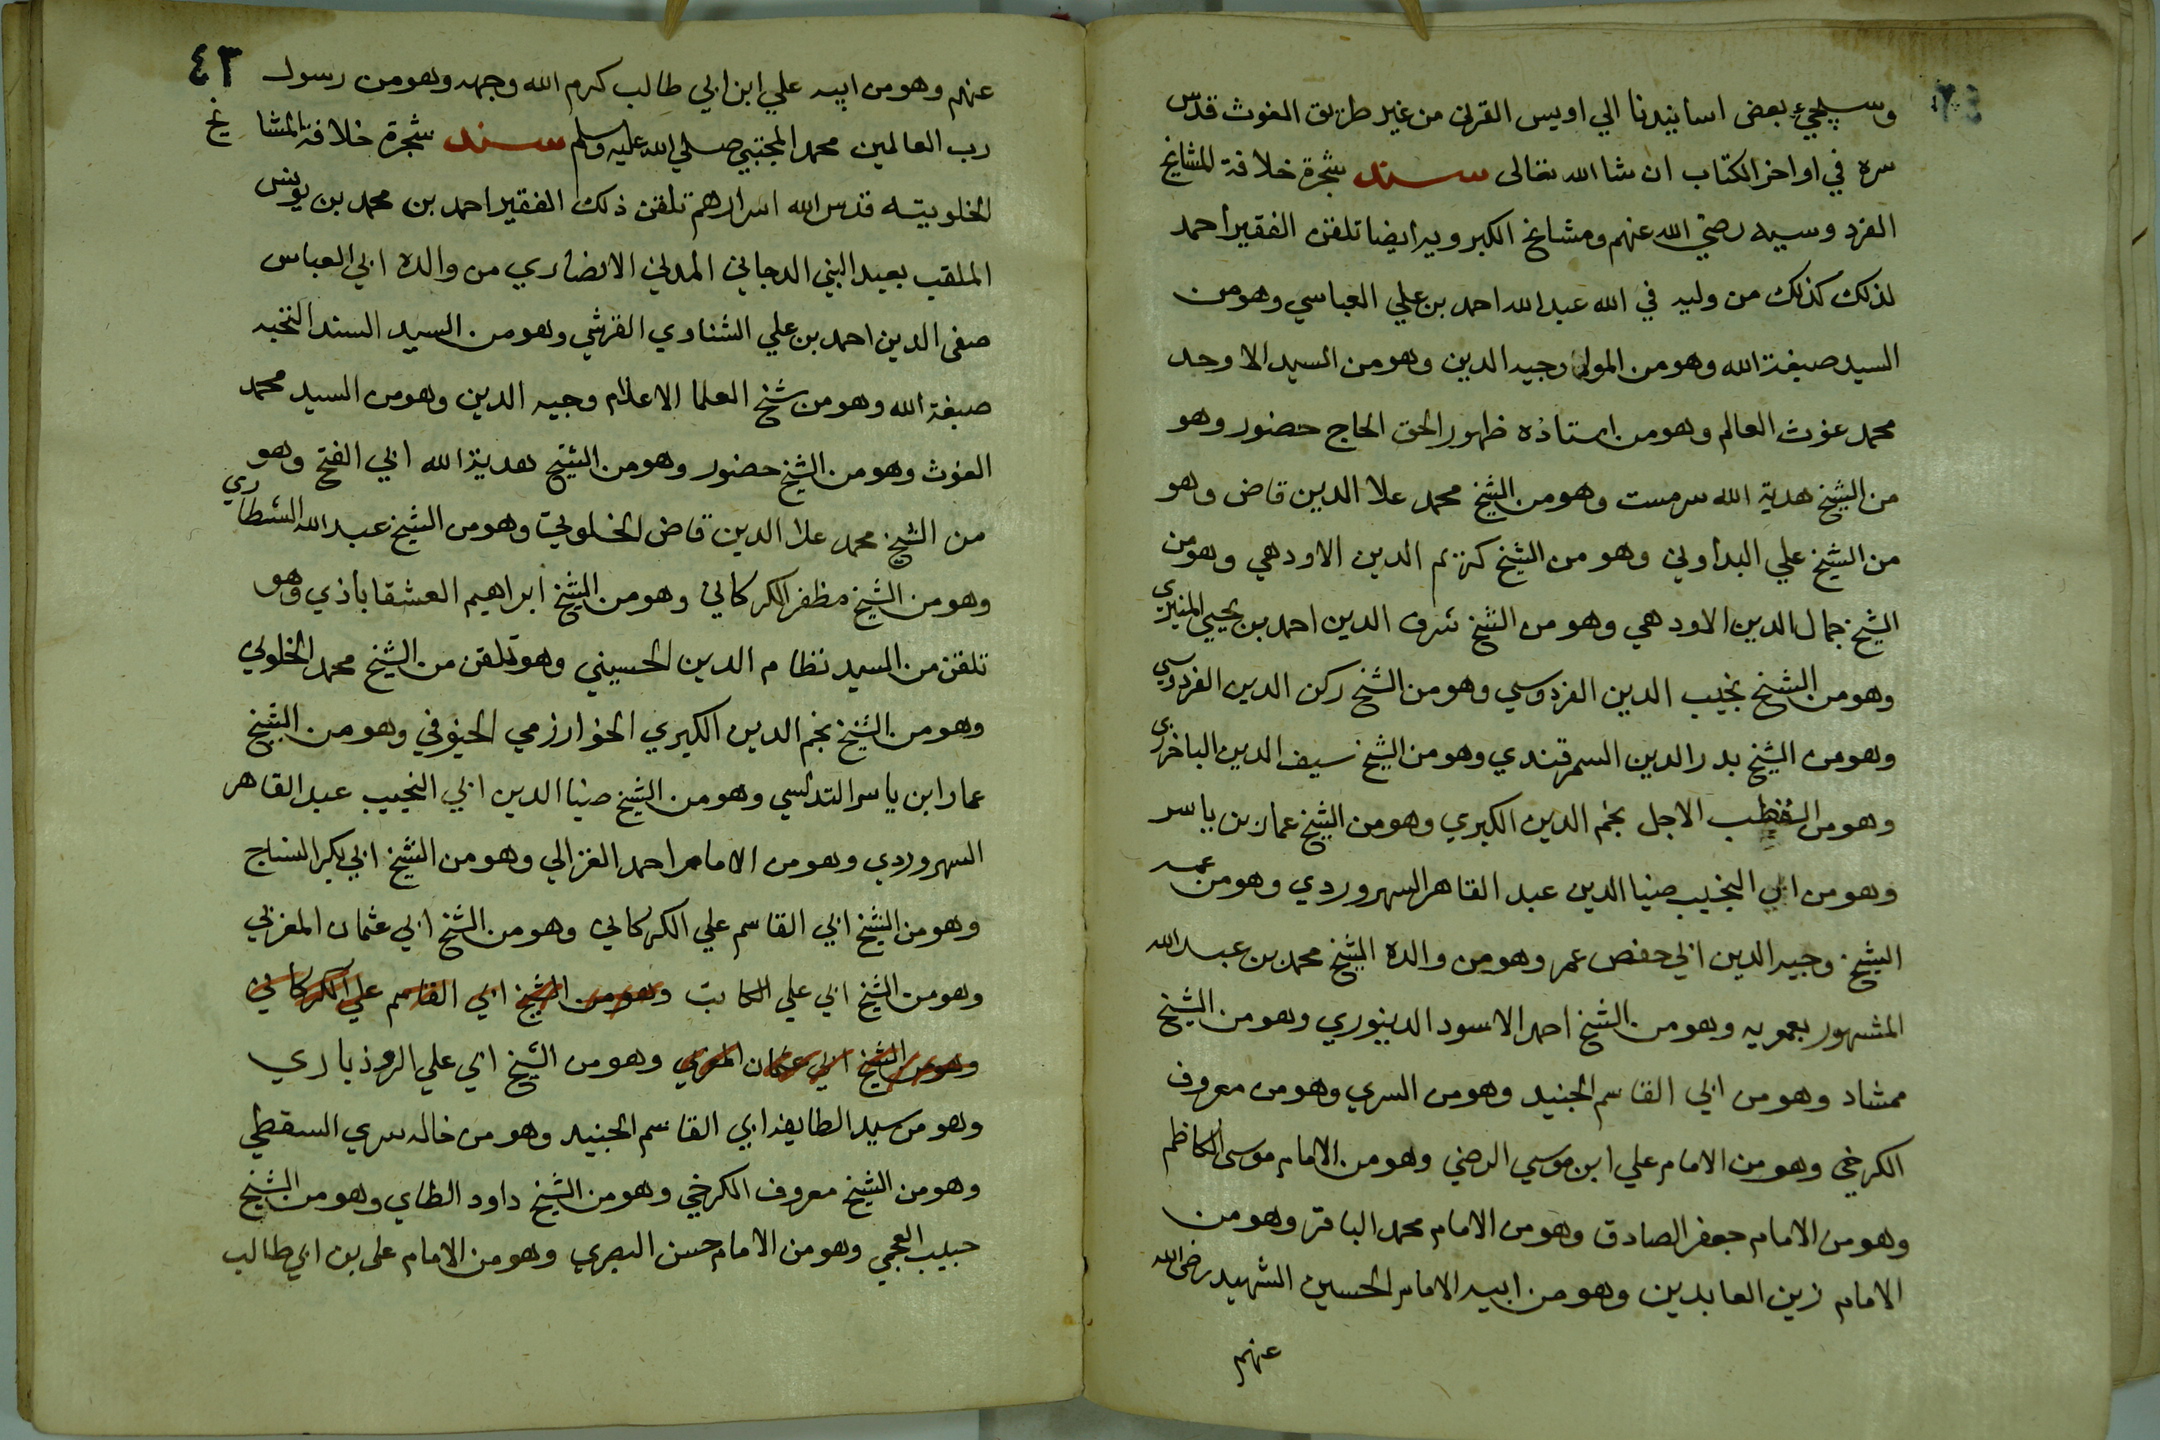 وسيجيء بعض اسانيدنا الي اويس القرني من غير طريق الغوث قدس
سره في اواخر الكتاب ان شا الله تعالى سند شجرة خلافة المشايخ
الفردوسيه رضي الله عنهم ومشايخ الكبرويه ايضا تلقن الفقير احمد
لذلك كذلك من وليه في الله عبد الله احمد بن علي العباسي وهو من
السيد صبغة الله وهو من المولى وجيه الدين وهو من السيد الاوحد
محمد غوث العالم وهو من استاذه ظهور الحق الحاج حضور وهو
من الشيخ هدية الله سرمست وهو من الشيخ محمد علا الدين قاض وهو
من الشيخ علي البداوني وهو من الشيخ كريم الدين الاودهي وهو من
الشيخ جمال الدين الاودهي وهو من الشيخ شرف الدين احمد بن يحيي المنيري
وهو من الشيخ نجيب الدين الفردوسي وهو من الشيخ ركن الدين الفردوسي
وهو من الشيخ بدر الدين السمرقندي وهو من الشيخ سيف الدين الباخرزي
وهو من القطب الاجل نجم الدين الكبري وهو من الشيخ عمار بن ياسر
وهو من ابي النجيب ضيا الدين عبد القاهر السهروردي وهو من عمه
الشيخ وجيه الدين ابي حفص عمر وهو من والده الشيخ محمد بن عبد الله
المشهور بعمويه وهو من الشيخ احمد الاسود الدينوري وهو من الشيخ
ممشاد وهو من ابي القاسم الجنيد وهو من السري وهو من معروف
الكرخي وهو من الامام علي ابن موسي الرضي وهو من الامام موسى الكاظم
وهو من الامام جعفر الصادق وهو من الامام محمد الباقر وهو من
الامام زين العابدين وهو من ابيه الامام الحسين الشهيد رضى الله
عنهم
٤٣
عنهم وهو من ابيه علي ابن ابي طالب كرم الله وجهه وهو من رسول
رب العالمين محمد المجتبي صلي الله عليه وسلم سند شجرة خلافة المشايخ
الخلوبتيه قدس الله اسرارهم تلقن ذلك الفقير احمد بن محمد بن يونس
الملقب بعبد النبي الدجاني المدني الانصاري من والده ابي العباس
صفى الدين احمد بن علي الشناوي القرشي وهو من السيد السند النخبه
صبغة الله وهو من شيخ العلما الاعلام وجيه الدين وهو من السيد محمد
الغوث وهو من الشيخ حضور وهو من الشيخ هدية الله ابي الفتح وهو
من الشيخ محمد علا الدين قاض الخلوتي وهو من الشيخ عبد الله الشطاري
وهو من الشيخ مظفر الكركاني وهو من الشيخ ابراهيم العشقاباذي وهو
تلقن من السيد نظام الدين الحسيني وهو تلقن من الشيخ محمد الخلوتي
وهو من الشيخ نجم الدين الكبري الخوارزمي الخيوفي وهو من الشيخ
عمار ابن ياسر التدلسي وهو من الشيخ ضيا الدين ابي النجيب عبد القاهر
السهروردي وهو من الامام احمد الغزالي وهو من الشيخ ابي بكر النساج
وهو من الشيخ ابي القاسم علي الكركاني وهو من الشيخ ابي عثمان المغربي
وهو من الشيخ ابي علي الكاتب وهو من الشيخ ابي القاسم علي الكركاني
وهو من الشيخ ابي عثمان المغربي وهو من الشيخ ابي علي الروذباري
وهو من سيد الطايفه ابي القاسم الجنيد وهو من خاله سري السقطي
وهو من الشيخ معروف الكرخي وهو من الشيخ داود الطاي وهو من الشيخ
حبيب العجمي وهو من الامام حسن البصري وهو من الامام على بن ابي طالب